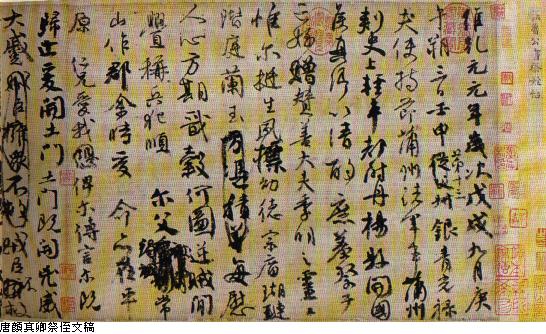 維乾元元年歲次戊戌九月庚
午朔三日壬申第十三叔從父銀青光祿
夫使持節蒲州諸軍事蒲州
刺史上輕車都尉丹楊縣開國
侯真卿以清酌庶羞祭于
亡姪贈贊善大夫季明之靈
惟爾挺生夙標幼德宗廟瑚璉
階庭蘭玉方憑積善每慰
人心方期戩穀何圖逆賊閒
釁稱兵犯順爾父竭誠常
山作郡余時受命亦在平
原仁兄愛我俾爾傳言爾既
歸止爰開土門土門既開凶威
大蹙賊臣擁衆不救
唐顏真卿祭侄文稿